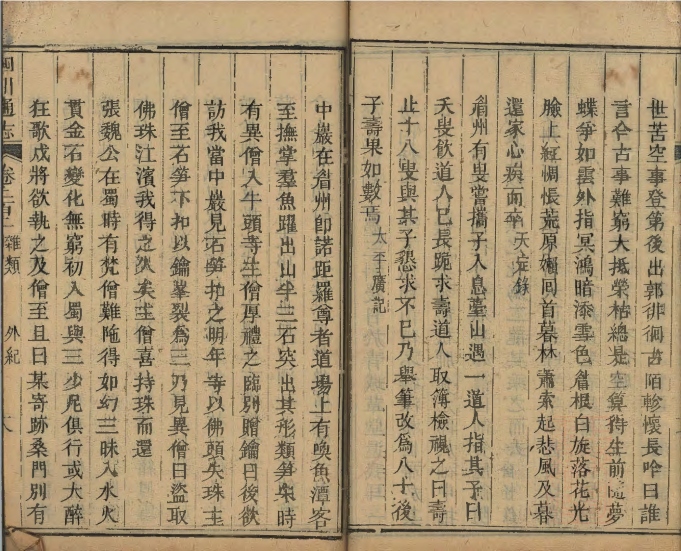 世苦空事登第後出郭徘徊古陌軫懷長吟曰誰
言今古事難窮大抵榮枯總是空算得生前隨夢
蝶爭如雲外指冥鴻暗添雪色眉根白旋落花光
臉上紅惆悵荒原嬾回首暮林蕭索起悲風及暮
還家心疾而卒 天定錄
眉州有叟嘗攜子入息臺山遇一道人指其子曰
夭叟飲道人已長跪求壽道人取簿檢視之曰壽
止十八叟與其子懇求不已乃舉筆改為八十後
子壽果如數焉 太平廣記
中巖在眉州即諾距羅尊者道場上有喚魚潭客
至撫掌羣魚躍出山半三石突出其形類筍柴時
有異僧入牛頭寺主僧厚禮之臨別贈鑰曰後欲
訪我當中巖見石筍扣之明年寺以佛頭失珠主
僧至石筍下扣以鑰峯裂為三乃見異僧曰盜取
佛珠江濱我得之久矣主僧喜持珠而還
張魏公在蜀時有梵僧難陁得如幻三昧入水火
貫金石變化無窮初入蜀與三少尼俱行或大醉
狂歌戍將欲執之及僧至且曰某寄跡桑門別有
四川通志 卷二百一 雜類 外紀